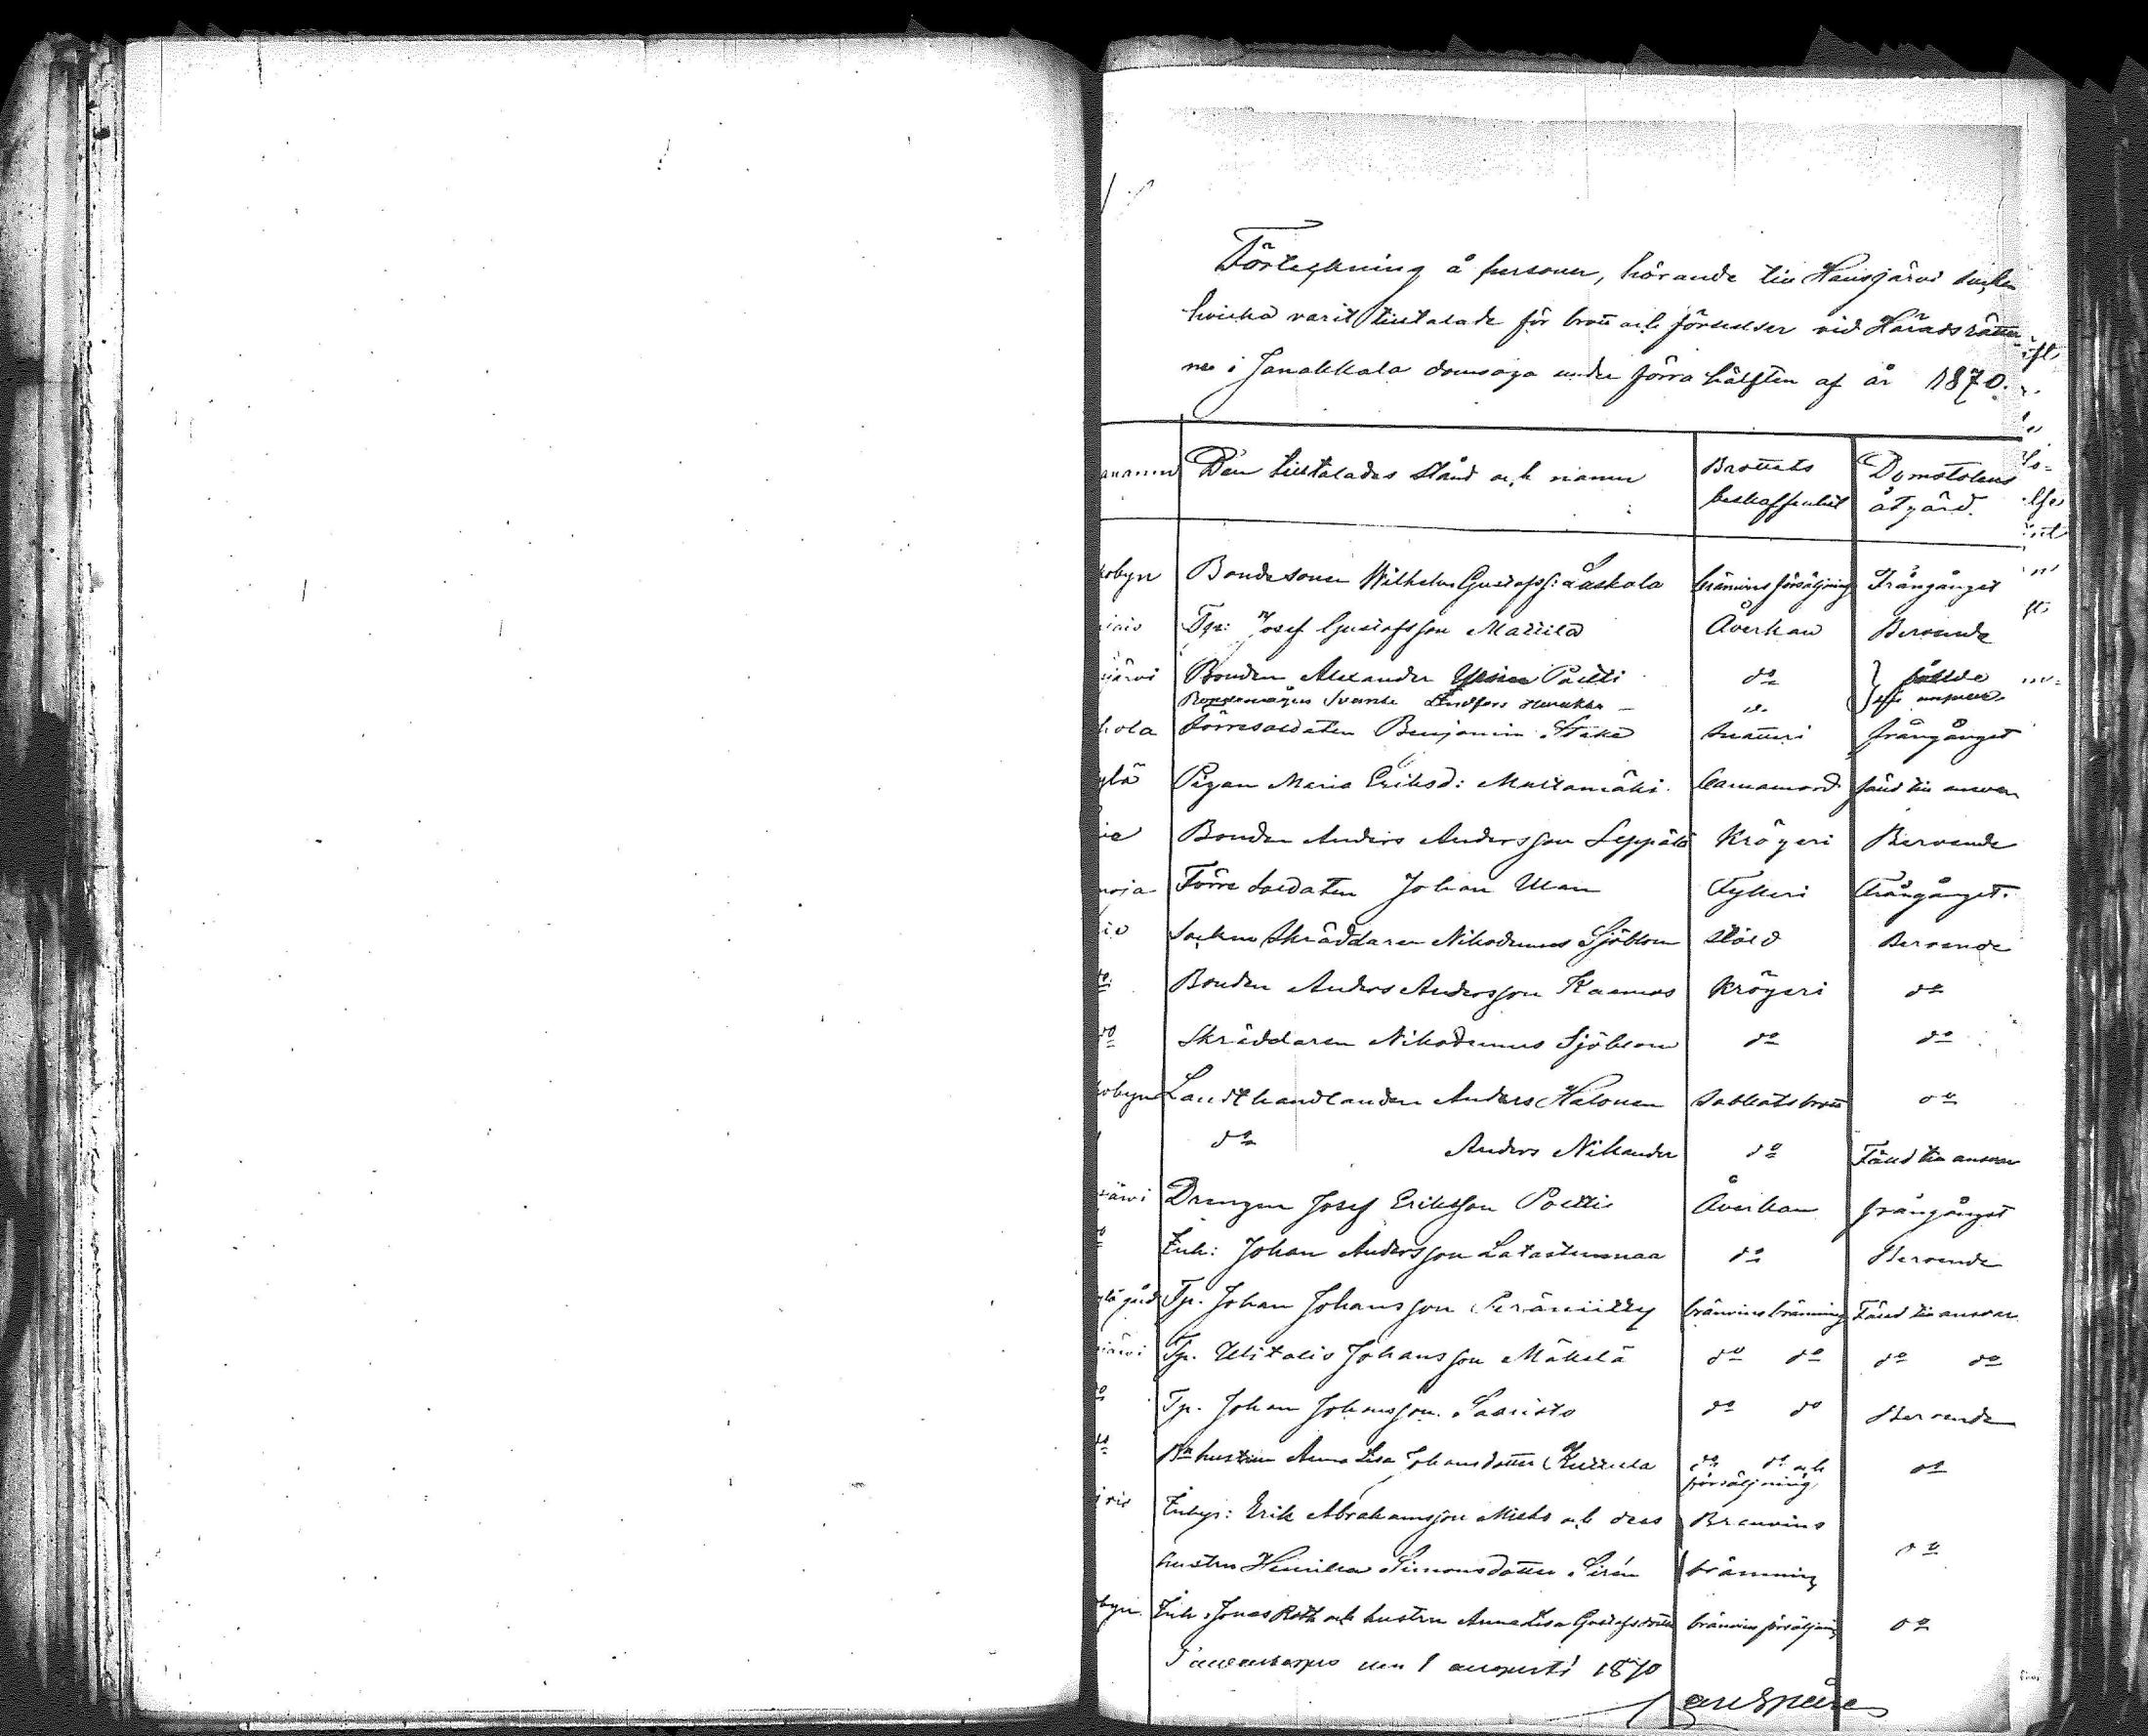 Förteckning å personer, hörande till Hausjärvi socken
hvilka varit tilltalade för brott och förseelser vid Häradsrätter-
ne i Janakkala domsaga under förra hälften af år 1870.
Den tilltalades stånd och namn Brottets beskaffenhet Domstolens åtgärd.
obyn Bondesonen Wilhelm Gustafss: Laskala bränvins försäljning Frångånget
Tp: Josef Gustafsson Mattila Åverkan Beroende
järvi Bonden Alexander Paltti do fällde
Svante Lindfors do till ansvar
hola förre soldaten Benjamin Snatteri frångånget
ylä Pigan Maria Eriksd: Mattamäki Barnamord fälld till ansvar
Bonden Anders Andersson Leppälä Krögeri Beroende
noja Förre Soldaten Johan Uman Fylleri Frångånget.
Socken Skräddaren Nikodemus Sjöblom Stöld Beroende
do Bonden Anders Andersson Kaamos Krögeri do
do Skräddaren Nikodemus Sjöblom do do
obyn Landthandlanden Anders Halonen Sabbatsbrott do
do Anders Nikander do Fälld till ansvar
järvi Drengen Josef Eriksson Paltti Åverkan frångånget
do Inh: Johan Andersson Latostenmaa do Beroende
gård Tp. Johan Johansson Peräniitty bränvins bränning Fälld till ansvar
järvi Tp. Vitalis Johansson Mäkelä do do do do
do Tp. Johan Johansson Saaristo do do Beroende
do Bde hustrun Anna Lisa Johansdotter do do och försäljning do
Inhys: Erik Abrahamsson och dess Brenvins
hustru Henrika Simonsdotter Sirén bränning do
byn. Inh. Jonas Roth och hustru Anna Lisa Gustafsdotter bränvins försäljning do
den 1 augusti 1870